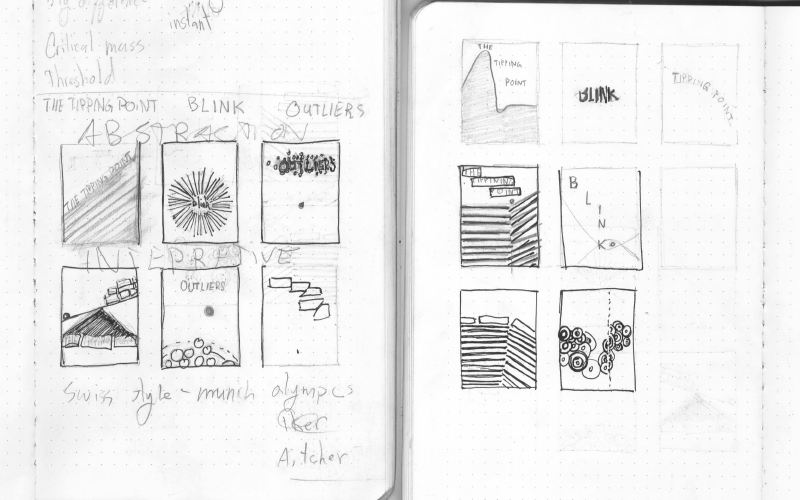 instant
Critical mass
Threshold
THE TIPPING POINT BLINK OUTLIERS
ABSTRACTION
THE TIPPING POINT
Blink
OUTLIERS
INTERPRETIVE
OUTLIERS
Swiss style - munich olympics
Aitcher
THE
TIPPING
POINT
BLINK
TIPPING POINT
THE
TIPPING
POINT
B
L
I
N
K